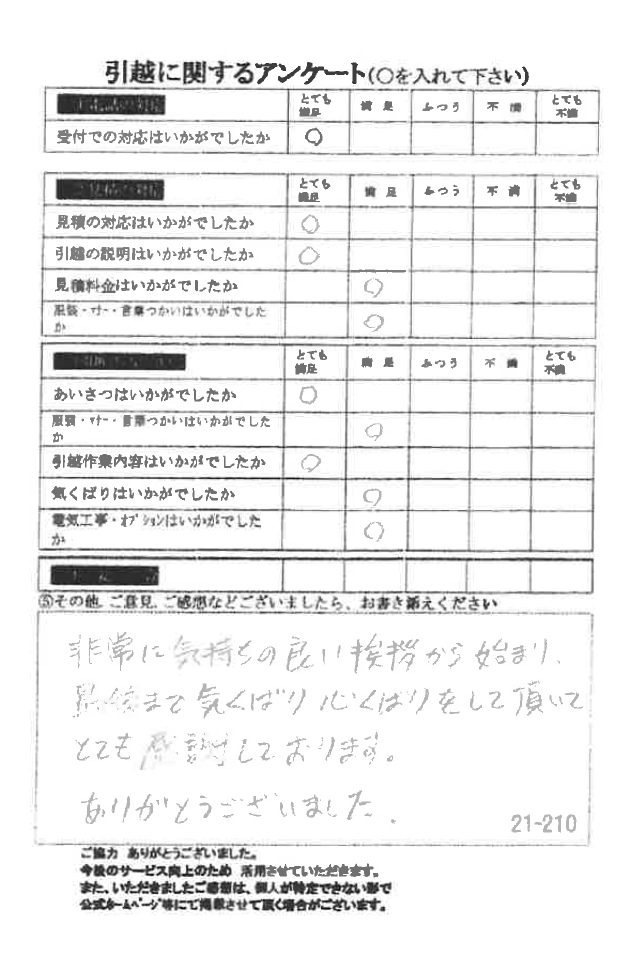 引越に関するアンケート(○を入れて下さい)
とても満足 満足 ふつう 不満 とても不満
受付での対応はいかがでしたか ○
とても満足 満足 ふつう 不満 とても不満
見積の対応はいかがでしたか ○
引越の説明はいかがでしたか ○
見積料金はいかがでしたか ○
服装・マナー・言葉つかいはいかがでした
か ○
とても満足 満足 ふつう 不満 とても不満
あいさつはいかがでしたか ○
服装・マナー・言葉つかいはいかがでした
か ○
引越作業内容はいかがでしたか ○
気くばりはいかがでしたか ○
電気工事・オプションはいかがでした
か ○
⑤その他、ご意見、ご感想などございましたら、お書き添えください
非常に気持ちの良い挨拶から始まり、
最後まで気くばり心くばりをして頂いて
とても感謝しております。
ありがとうございました.
21-210
ご協力 ありがとうございました。
今後のサービス向上のため 活用させていただきます。
また、いただきましたご感想は、個人が特定できない形で
公式ホームページ等にて掲載させて頂く場合がございます。